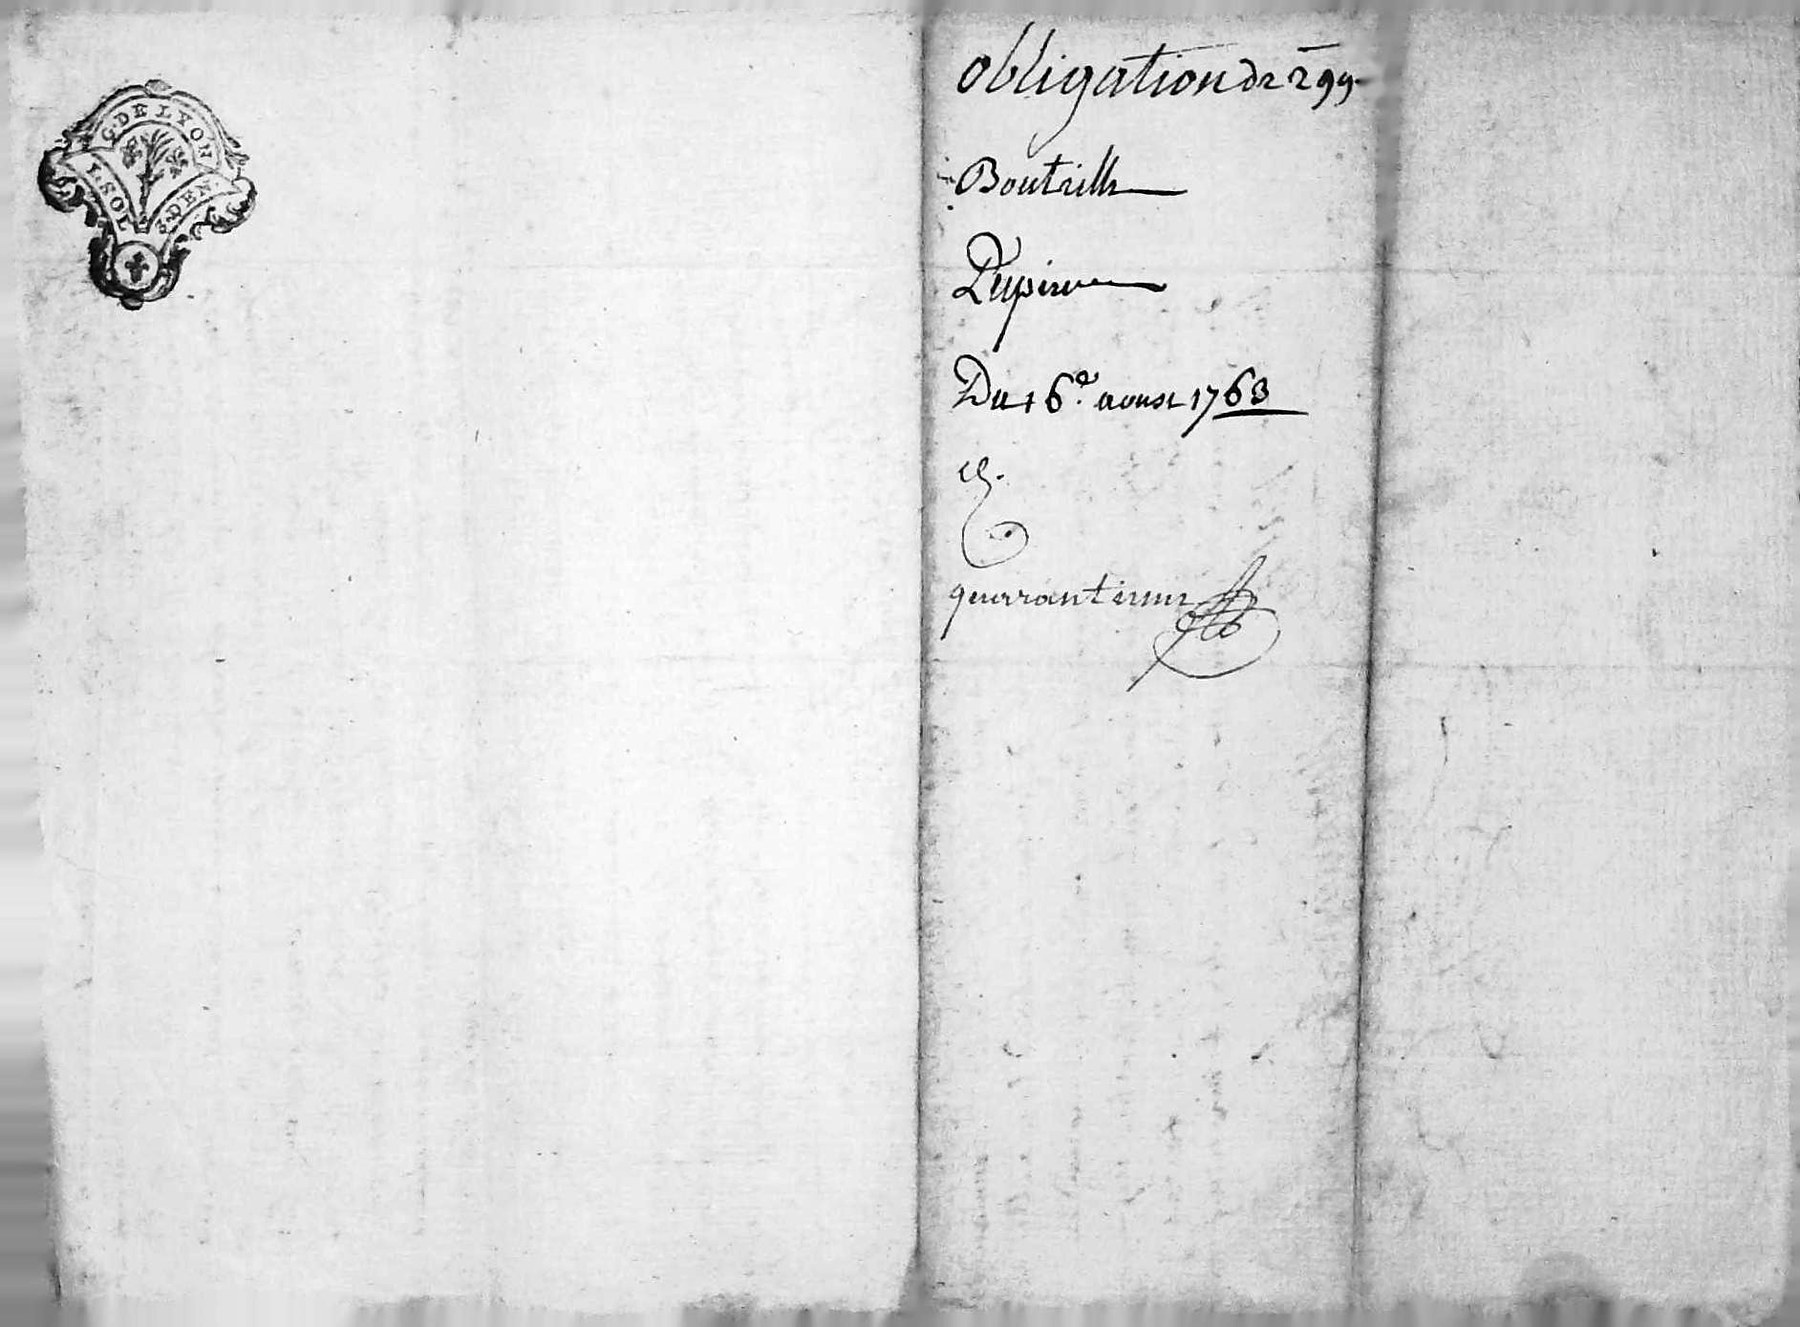 G. DE LYON
1. SOL 8. DEN.
obligation de 299
Bouteille
Du 16e. aoust 1763
quarante un